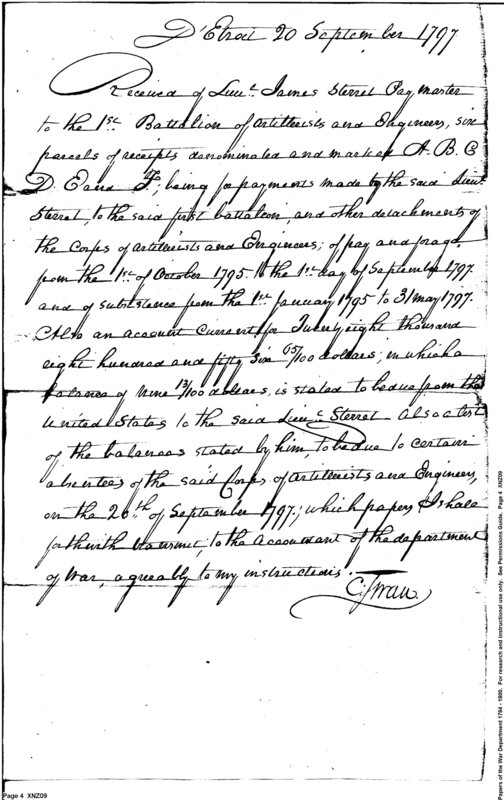 D'Etroit 20 September 1797
Received of Lieut. James Sterret Paymaster
to the 1st Battalion of Artillerists and Engineers, six
parcels of receipts denominated and marked A. B. C
D. E and F; being for payments made by the said Lieut.
Sterret, to the said first battalion, and other detachments of
the Corps of Artillerists and Engineers; of pay and forage
from the 1st of October 1795. to the 1st day of September 1797.
and of subsistence from the 1st January 1795 to 31 May 1797.
Also an account Current for Twenty eight thousand
eight hundred and fifty six 65/100 dollars; in which a
balance of nine 13/100 dollars, is stated to be due from the
United States to the said Lieut. Sterret. Also a list
of the balances stated by him, to be due to certain
absentees of the said Corps of Artillerists and Engineers,
on the 20th of September 1797; which papers I shall
forthwith transmit, to the Accountant of the department
of War, agreeably to my instructions.
C. Swan
Page 4 XNZ09
Papers of the War Department 1784 - 1800. For research and instructional use only. See Permissions Guide. Page 4 XNZ09